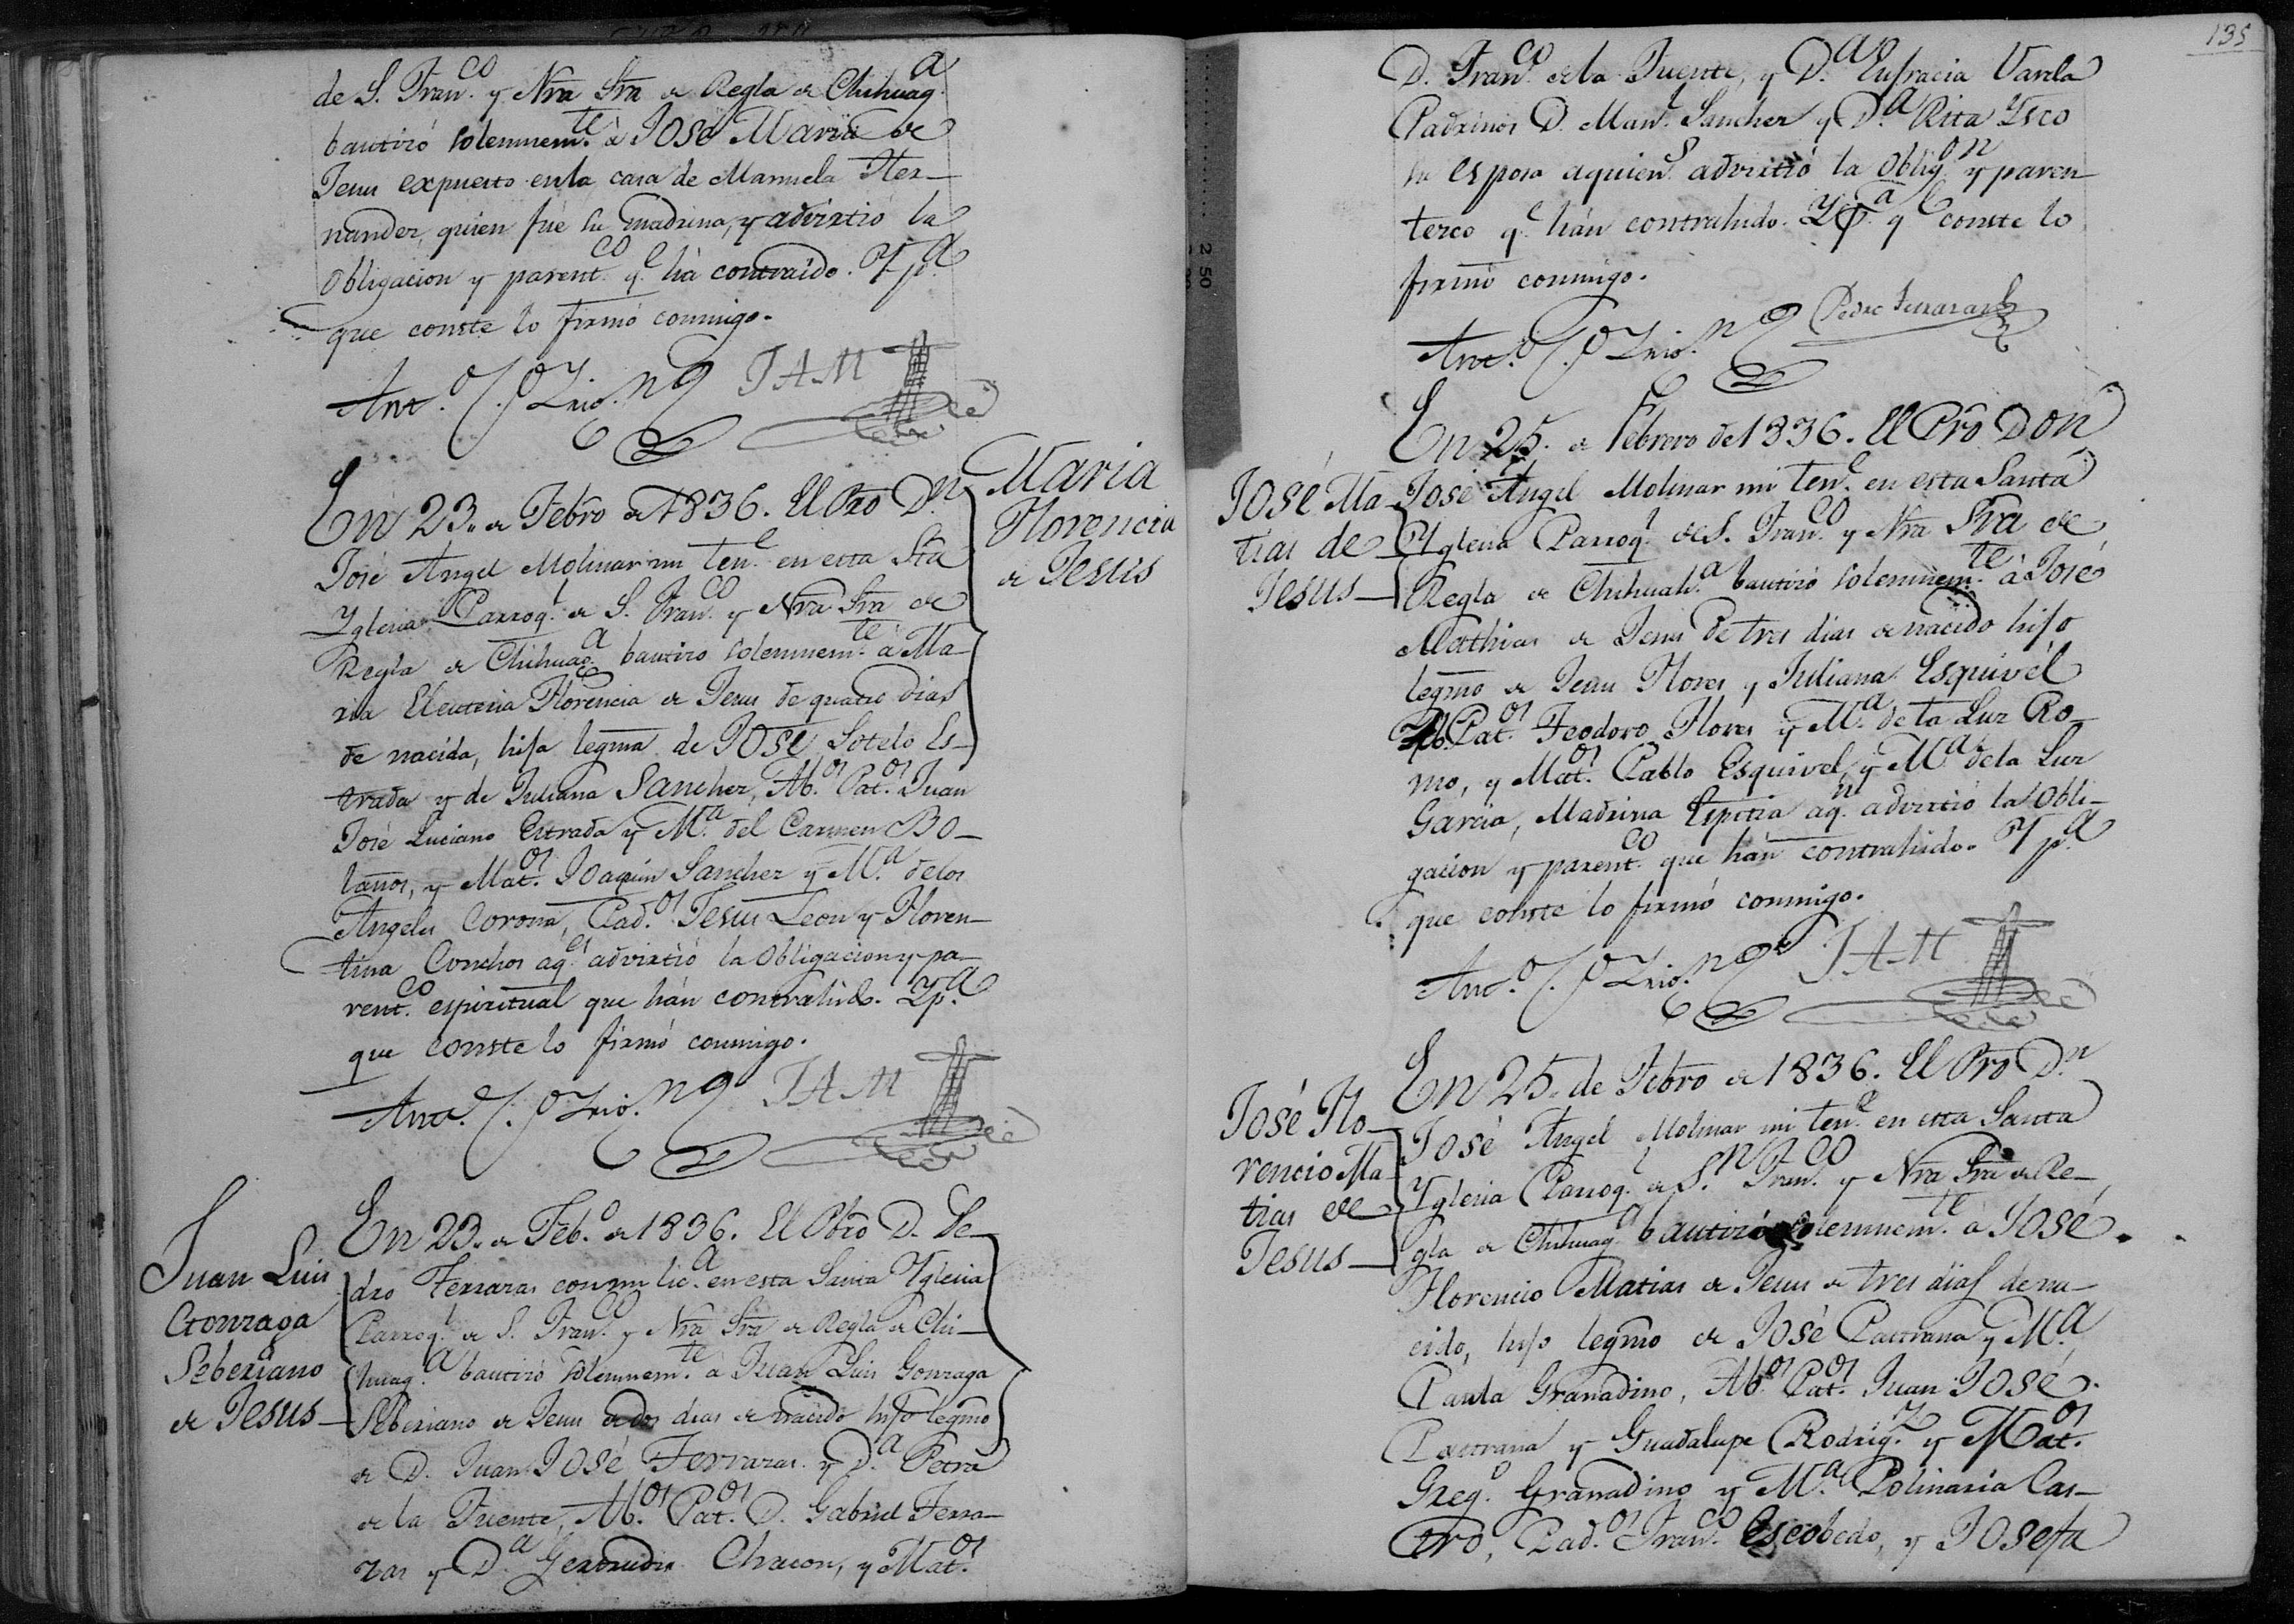 de S. Fran.co y Nra Sra de Regla de Chihuag.a
bautizó solemnem.te à José Maria de
Jesus expuesto en la casa de Manuela Her-
nandez, quien fué su madrina, y advirtió la
obligacion y parent.co q.e há contraido. Y p.a
que conste lo firmó conmigo.
JAM
En 23. de Febro de 1836. El Pro D.n
José Angel Molinar mi ten.e en esta Sta
Yglesia Parroq.l de S. Fran.co y Nra Sra de
Regla de Chihuag.a bautizo solemnem.te à Ma-
ria Eleuteria Florencia de Jesus de quatro dias
de nacida, hija legma de José Sotelo Es-
trada y de Juliana Sanchez, Ab.os Pat.os Juan
José Luciano Estrada y M.a del Carmen Bo-
laños, y Mat.os Joaquin Sanchez y M.a de los
Angeles Corona, Pad.os Jesus Leon y Floren-
tina Conchos aq.es advirtió la obligacion y pa-
rent.co espiritual que hán contrahido. Y p.a
que conste lo firmó conmigo.
JAM
Maria
Florencia
de Jesus
En 23. de Feb.o de 1836. El Pbro D. Pe-
dro Ferraras con mi lic.a en esta Santa Yglesia
Parroq.l de S. Fran.co y Nra Sra de Regla de Chi-
huag.a bautizó solemnem.te à Juan Luis Gonzaga
Seberiano de Jesus de dos dias de nacido hijo legmo
de D. Juan José Ferraras y D.a Petra
de la Fuente, Ab.os Pat.os D. Gabriel Ferra-
ras y D.a Gertrudis Chacon, y Mat.os
Juan Luis
Gonzaga
Seberiano
de Jesus
135
D. Fran.co de la Fuente, y D.a Eufracia Varela
Padrinos D. Man.l Sanchez y D.a Rita
su esposa aquien.s advirtió la oblig.on y paren-
tezco q.e hán contrahido. Y p.a q.e conste lo
firmó conmigo.
Pedro Ferraras
En 25. de Febrero de 1836. El Pro Don
José Angel Molinar mi ten.e en esta Santa
Yglesia Parroq.l de S. Fran.co y Nra Sra de
Regla de Chihuah.a bautizó solemnem.te à José
Mathias de Jesus de tres dias de nacido hijo
legmo de Jesus Flores y Juliana Esquivél
Ab. Pat.os Teodoro Flores y M.a de la Luz Ro-
mo, y Mat.os Pablo Esquivel, y M.a de la Luz
Garcia, Madrina aq.n advirtió la obli-
gacion y parent.co que hán contrahido. Y p.a
que conste lo firmó conmigo.
JAM
José Ma-
tias de
Jesus
En 25. de Febro de 1836. El Pro D.n
José Angel Molinar mi ten.e en esta Santa
Yglesia Parroq.l de S.n Fran.co y Nra Sra de Re-
gla de Chihuag.a bautizó solemnem.te à José
Florencio Matias de Jesus de tres dias de na-
cido, hijo legmo de José Pastrana y M.a
Paula Granadino, Ab.os Pat.os Juan José
Pastrana y Guadalupe Rodrig.z y Mat.os
Greg.o Granadino y M.a Polinaria Cas-
tro, Pad.os Fran.co Escobedo, y Josefa
José Flo-
rencio Ma-
tias de
Jesus